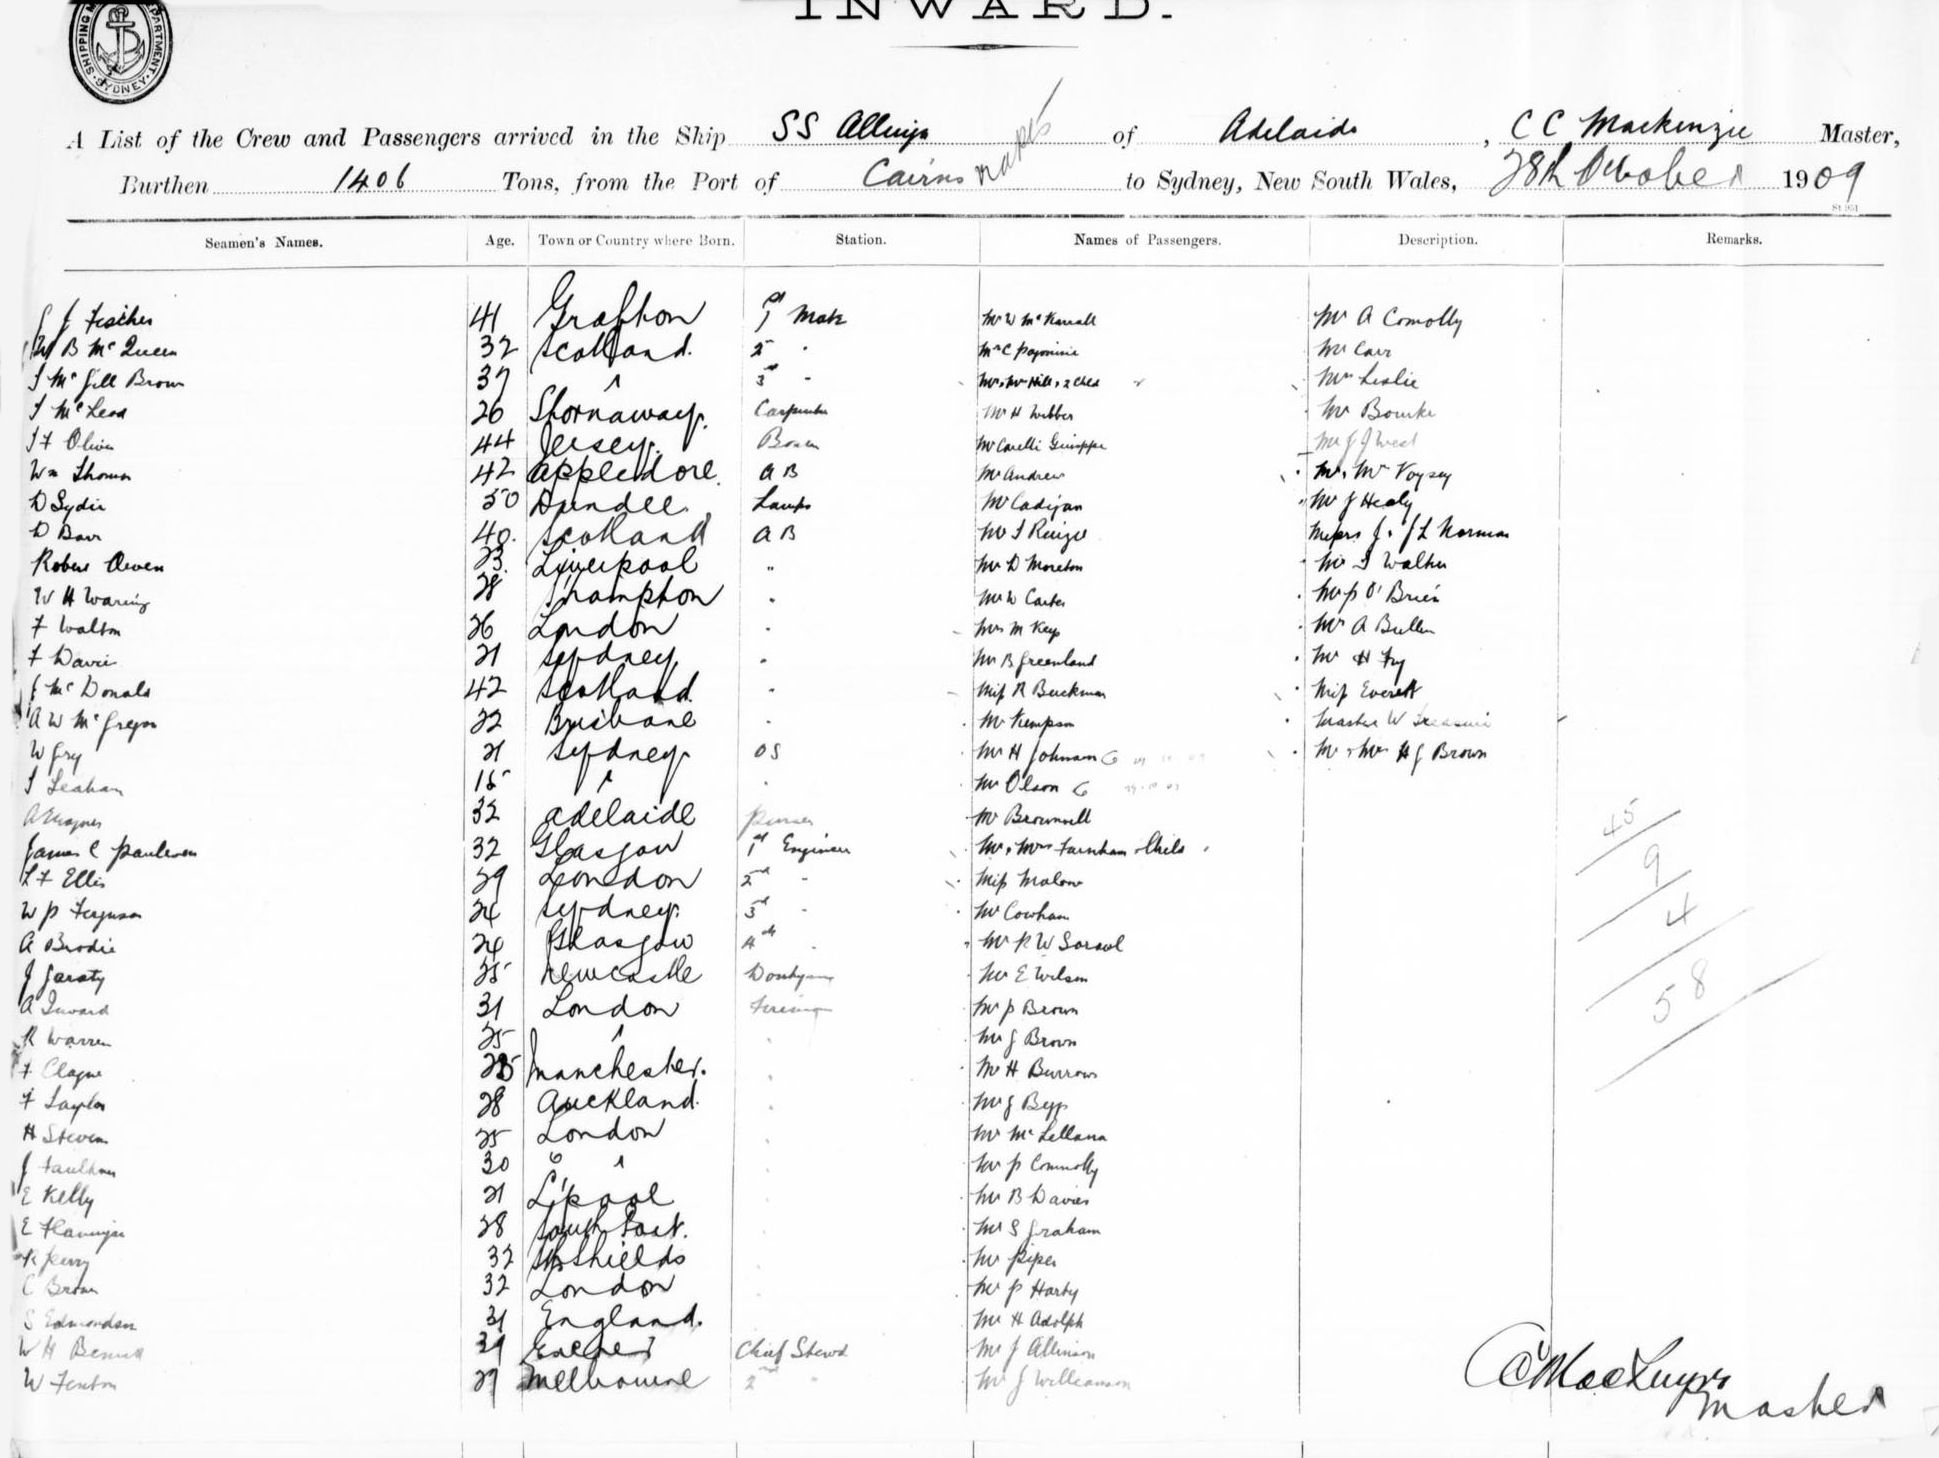 INWARD.
SHIPPING M DEPARTMENT. SYDNEY
A List of the Crew and Passengers arrived in the Ship SS Allinga of Adelaide, C C Mackenzie Master,
Burthen 1406 Tons, from the Port of Cairns to Sydney, New South Wales, 28th October 1909
Seamen's Names. Age. Town or Country where Born. Station. Names of Passengers. Description. Remarks.
J Fischer 41 Grafton 1st Mate Mr W Mc Mr A Comolly
W B McQueen 32 Scotland. 2nd " Mr C Mr Carr
J McGill Brown 37 " 3rd " Mr & Mrs Hill & 2 Chld Mrs Leslie
J McLeod 26 Stornaway. Carpenter Mr H Webber Mr Bourke
J F Oliver 44 Jersey. Bosun Mr Carelli Guiseppe Mr J J West
Wm Thomas 42 Appledore. A B Mr Andrew Mr & Mrs Voysey
D Lydie 50 Dundee. Lamps Mr Cadigan Mr J Healy
D Barr 40. Scotland A B Mr J Messrs J & J L Norman
Robert Owen 23. Liverpool " Mr D Moreton Mr J Walker
W H Waring 28 S'hampton " Mr W Carter Miss O'Brien
F Walton 26 London " Mrs M Keys Mr A Bullen
F Davis 21 Sydney " Mr B Greenland Mr H Fry
J McDonald 42 Scotland. " Miss R Buckman Miss Everett
A W McGregor 22 Brisbane " Mr Kempson Master W
W Gry 21 Sydney. O S Mr H Johnson Mr & Mrs H J Brown
J Leahan 18 " " Mr Olson
A 32 Adelaide Purser Mr Brownell
James C Paulsen 32 Glasgow 1st Engineer Mr & Mrs Farnham & Child
L F Ellis 29 London 2nd " Miss Malone
W P Ferguson 24 Sydney. 3rd " Mr Cowham
A Brodie 24 Glasgow 4th " Mr R W
J Garaty 25 Newcastle Donkeyman Mr E Wilson
A 31 London Fireman Mr P Brown
R Warren 25 " " Mr J Brown
F Clague 25 Manchester. " Mr H Burrows
F Taylor 28 Auckland. " Mr J
H Steven 25 London " Mr McLellan
J Faulkner 30 " " Mr P Connolly
E Kelly 21 L'pool " Mr B Davies
E Flannigan 28 " Mr S Graham
R Perry 32 Sh Shields " Mr Piper
C Brown 32 London " Mr P Harty
S Edmondson 31 England. Mr H Adolph
W H Bennett 39 Chief Stewd Mr J Allinson
W Fenton 27 Melbourne 2nd " Mr J Williamson
45
9
4
58
C C MacKenzie
Master